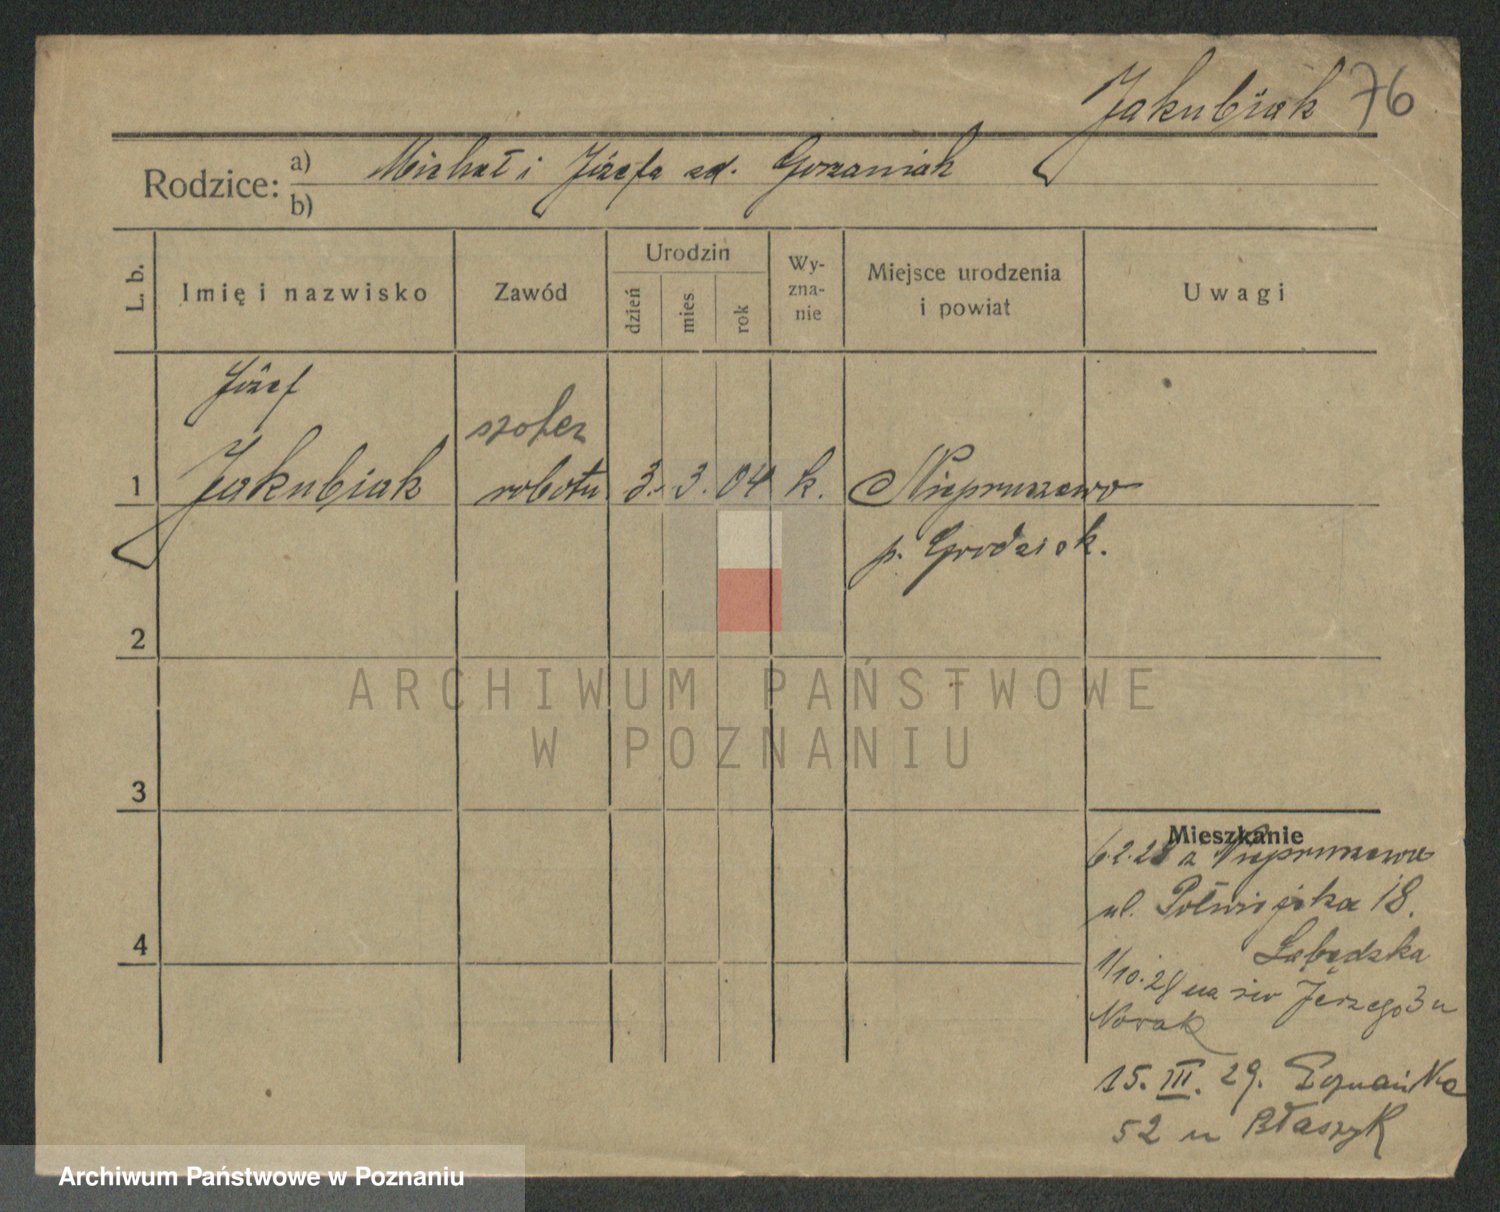 Jakubiak 76
Rodzice: a) Michał i Józefa zd. Gorzaniak
b)
L. b.
Imię i nazwisko
Zawód
Urodzin
dzień
mies.
rok
Wy-
zna-
nie
Miejsce urodzenia
i powiat
Uwagi
Józef
szofer
1 Jakubiak robotn 3. 3. 04 k. Niepruszewo
p. Grodzisk.
2
ARCHIWUM PAŃSTWOWE
W POZNANIU
3
Mieszkanie
6.2.28 z Niepruszewa
ul. Półwiejska 18.
Łabędzka
1/10.28 na św Jerzego 3 u
Nowak
15. III. 29. Poznańska
52 u Błaszyk
4
Archiwum Państwowe w Poznaniu